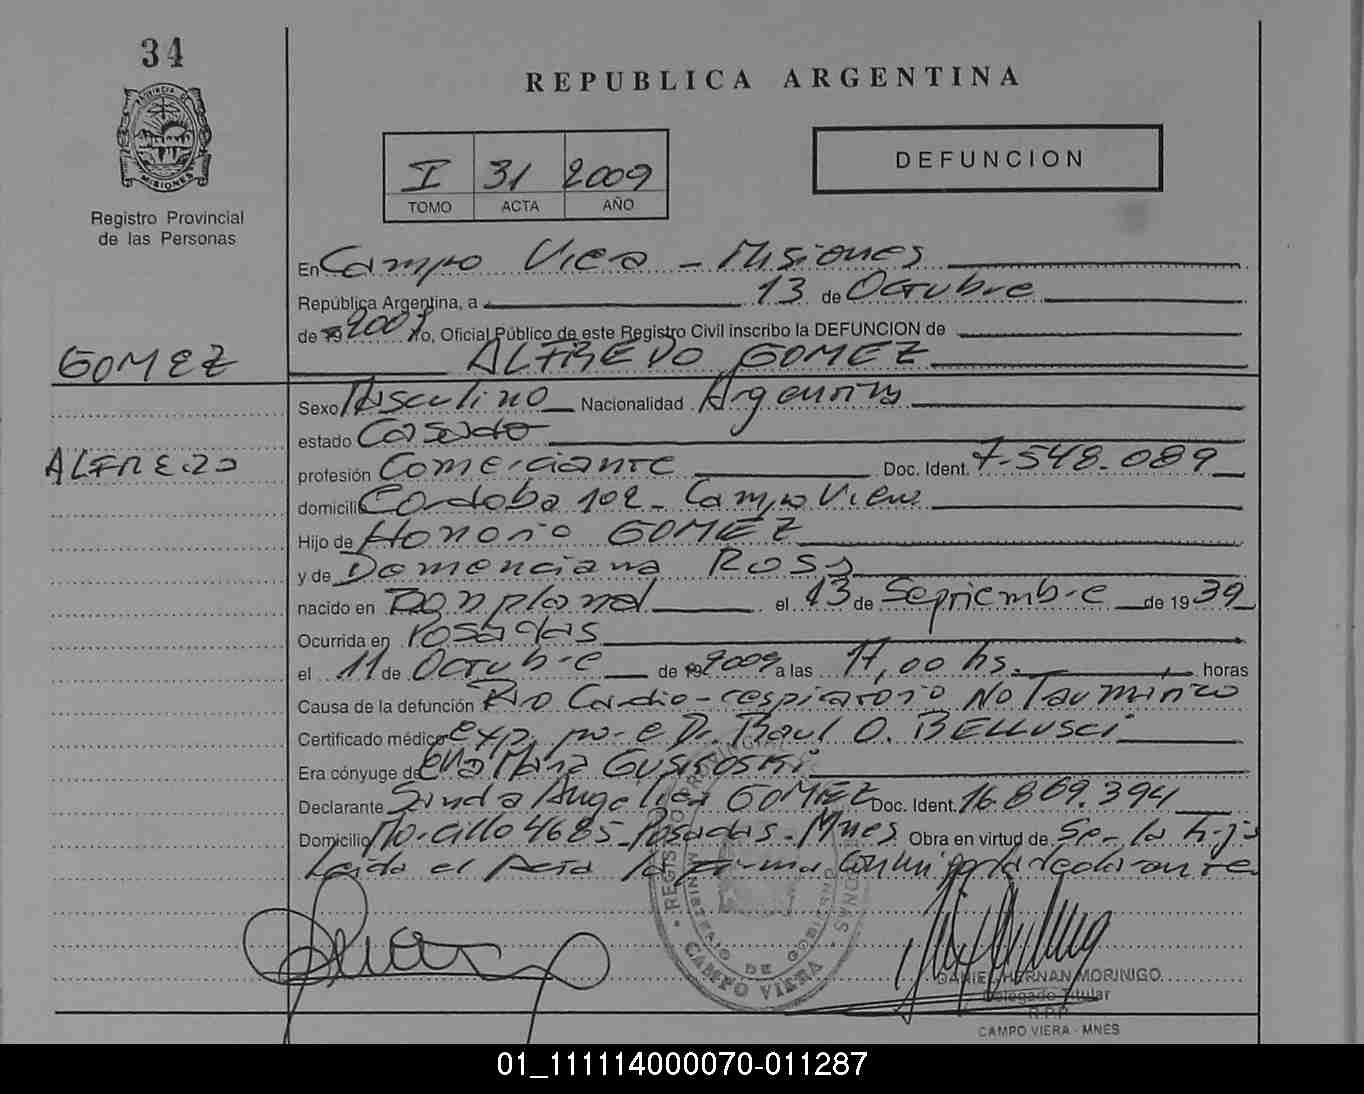 34
PROVINCIA DE
MISIONES
Registro Provincial
de las Personas
REPUBLICA ARGENTINA
I 31 2009
TOMO ACTA AÑO
DEFUNCION
En Campo Viera - Misiones
República Argentina, a 13 de Octubre
de 19 2009 Yo, Oficial Público de este Registro Civil inscribo la DEFUNCION de
ALFREDO GOMEZ
GOMEZ
ALFREDO
Sexo Masculino Nacionalidad Argentina
estado Casado
profesión Comerciante Doc. Ident. 7.548.089
domicilio Cordoba 102 - Campo Viera
Hijo de Honorio GOMEZ
y de Domenciana ROSA
nacido en Bonpland el 13 de Septiembre de 19 39
Ocurrida en Posadas
el 11 de Octubre de 19 2009 a las 17,00 hs. horas
Causa de la defunción Paro Cardio-respiratorio No Taumático
Certificado médico exp. por el Dr. Raul O. BELLUSCI
Era cónyuge de María
Declarante Angélica GOMEZ Doc. Ident. 16.869.394
Domicilio 4685 - Posadas - Mnes Obra en virtud de Ser la hija
Leida el Acta la Firma Conmigo la declarante
REGISTRO PROVINCIAL PERSONAS
MINISTERIO DE GOBIERNO
CAMPO VIERA
DANIEL HERNAN MORINIGO
Delegado Titular
R.P.P.
CAMPO VIERA - MNES
01_111114000070-011287